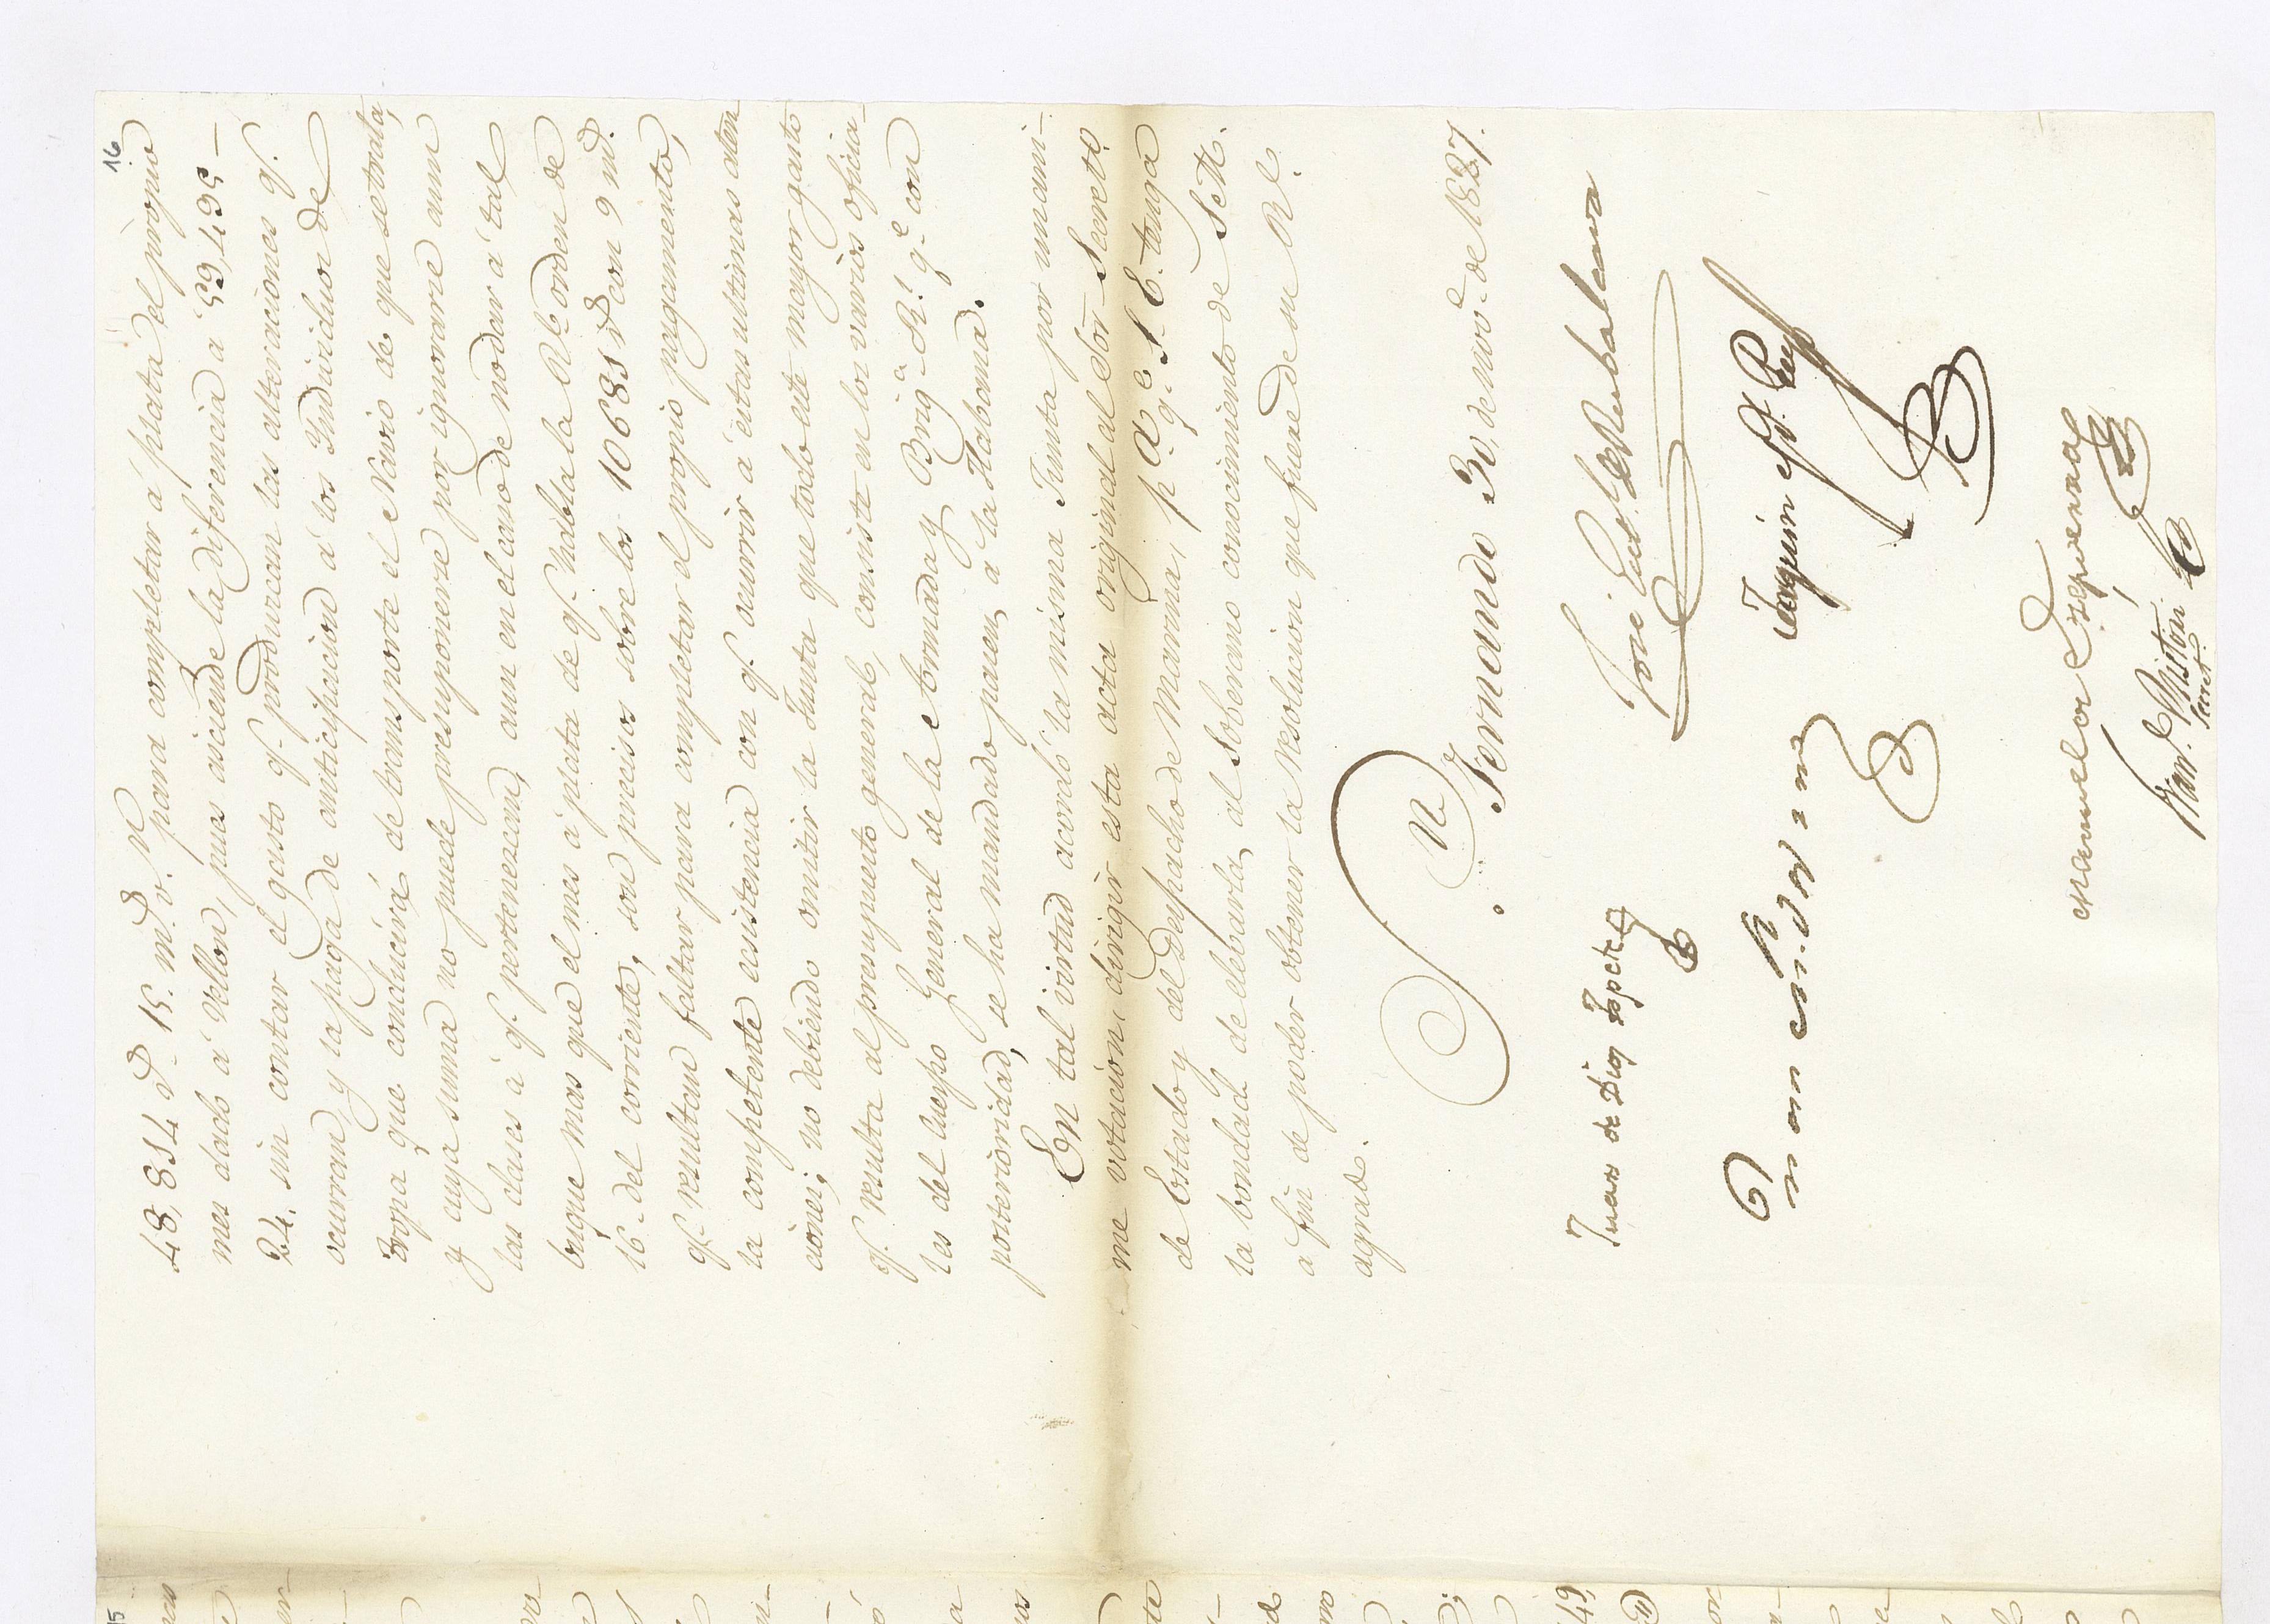 16
48,854 r.s 15. m.s v.n para completar á plata el propio
mes dado á Vellon, pues asciende la diferencia á 59,495-
24. sin contar el gasto q.e produzcan las alteraciones q.e
ocurran, y la paga de anticipacion á los Individuos de
tropa que conducirá de transporte el Navio de que se trata,
y cuya suma no puede presuponerse por ignorarse aun
las clases á q.e pertenezcan, aun en el caso de no dar á tal
buque mas que el mes á plata de q.e habla la R.l orden de
16. del corriente, son precisos sobre los 10685 r.s con 9 m.s
q.e resultan faltar para completar el propio pagamento,
la competente existencia con q.e ocurrir á estas ultimas aten
ciones; no debiendo omitir la Junta que todo este mayor gasto
q.e resulta al presupuesto general, consiste en los varios oficia-
les del Cuerpo General de la Armada y Brig.a R.l q.e con
posterioridad, se ha mandado pasen á la Habana.
En tal virtud acordó la misma Junta por unani-
me votacion, dirigir esta acta original al Sór. Secret.o
de Estado y del Despacho de Marina, p.a q.e S. E. tenga
la bondad de elebarla al Soberano conocimiento de S. M.
á fin de poder obtener la resolucion que fuere de su R.l
agrado.
S.n Fernando 30, de nov.e de 1827.
Juan de Dios Topete
José
Joaquin
Manuel de Espeleta
Man.l
Secret.o
15
49